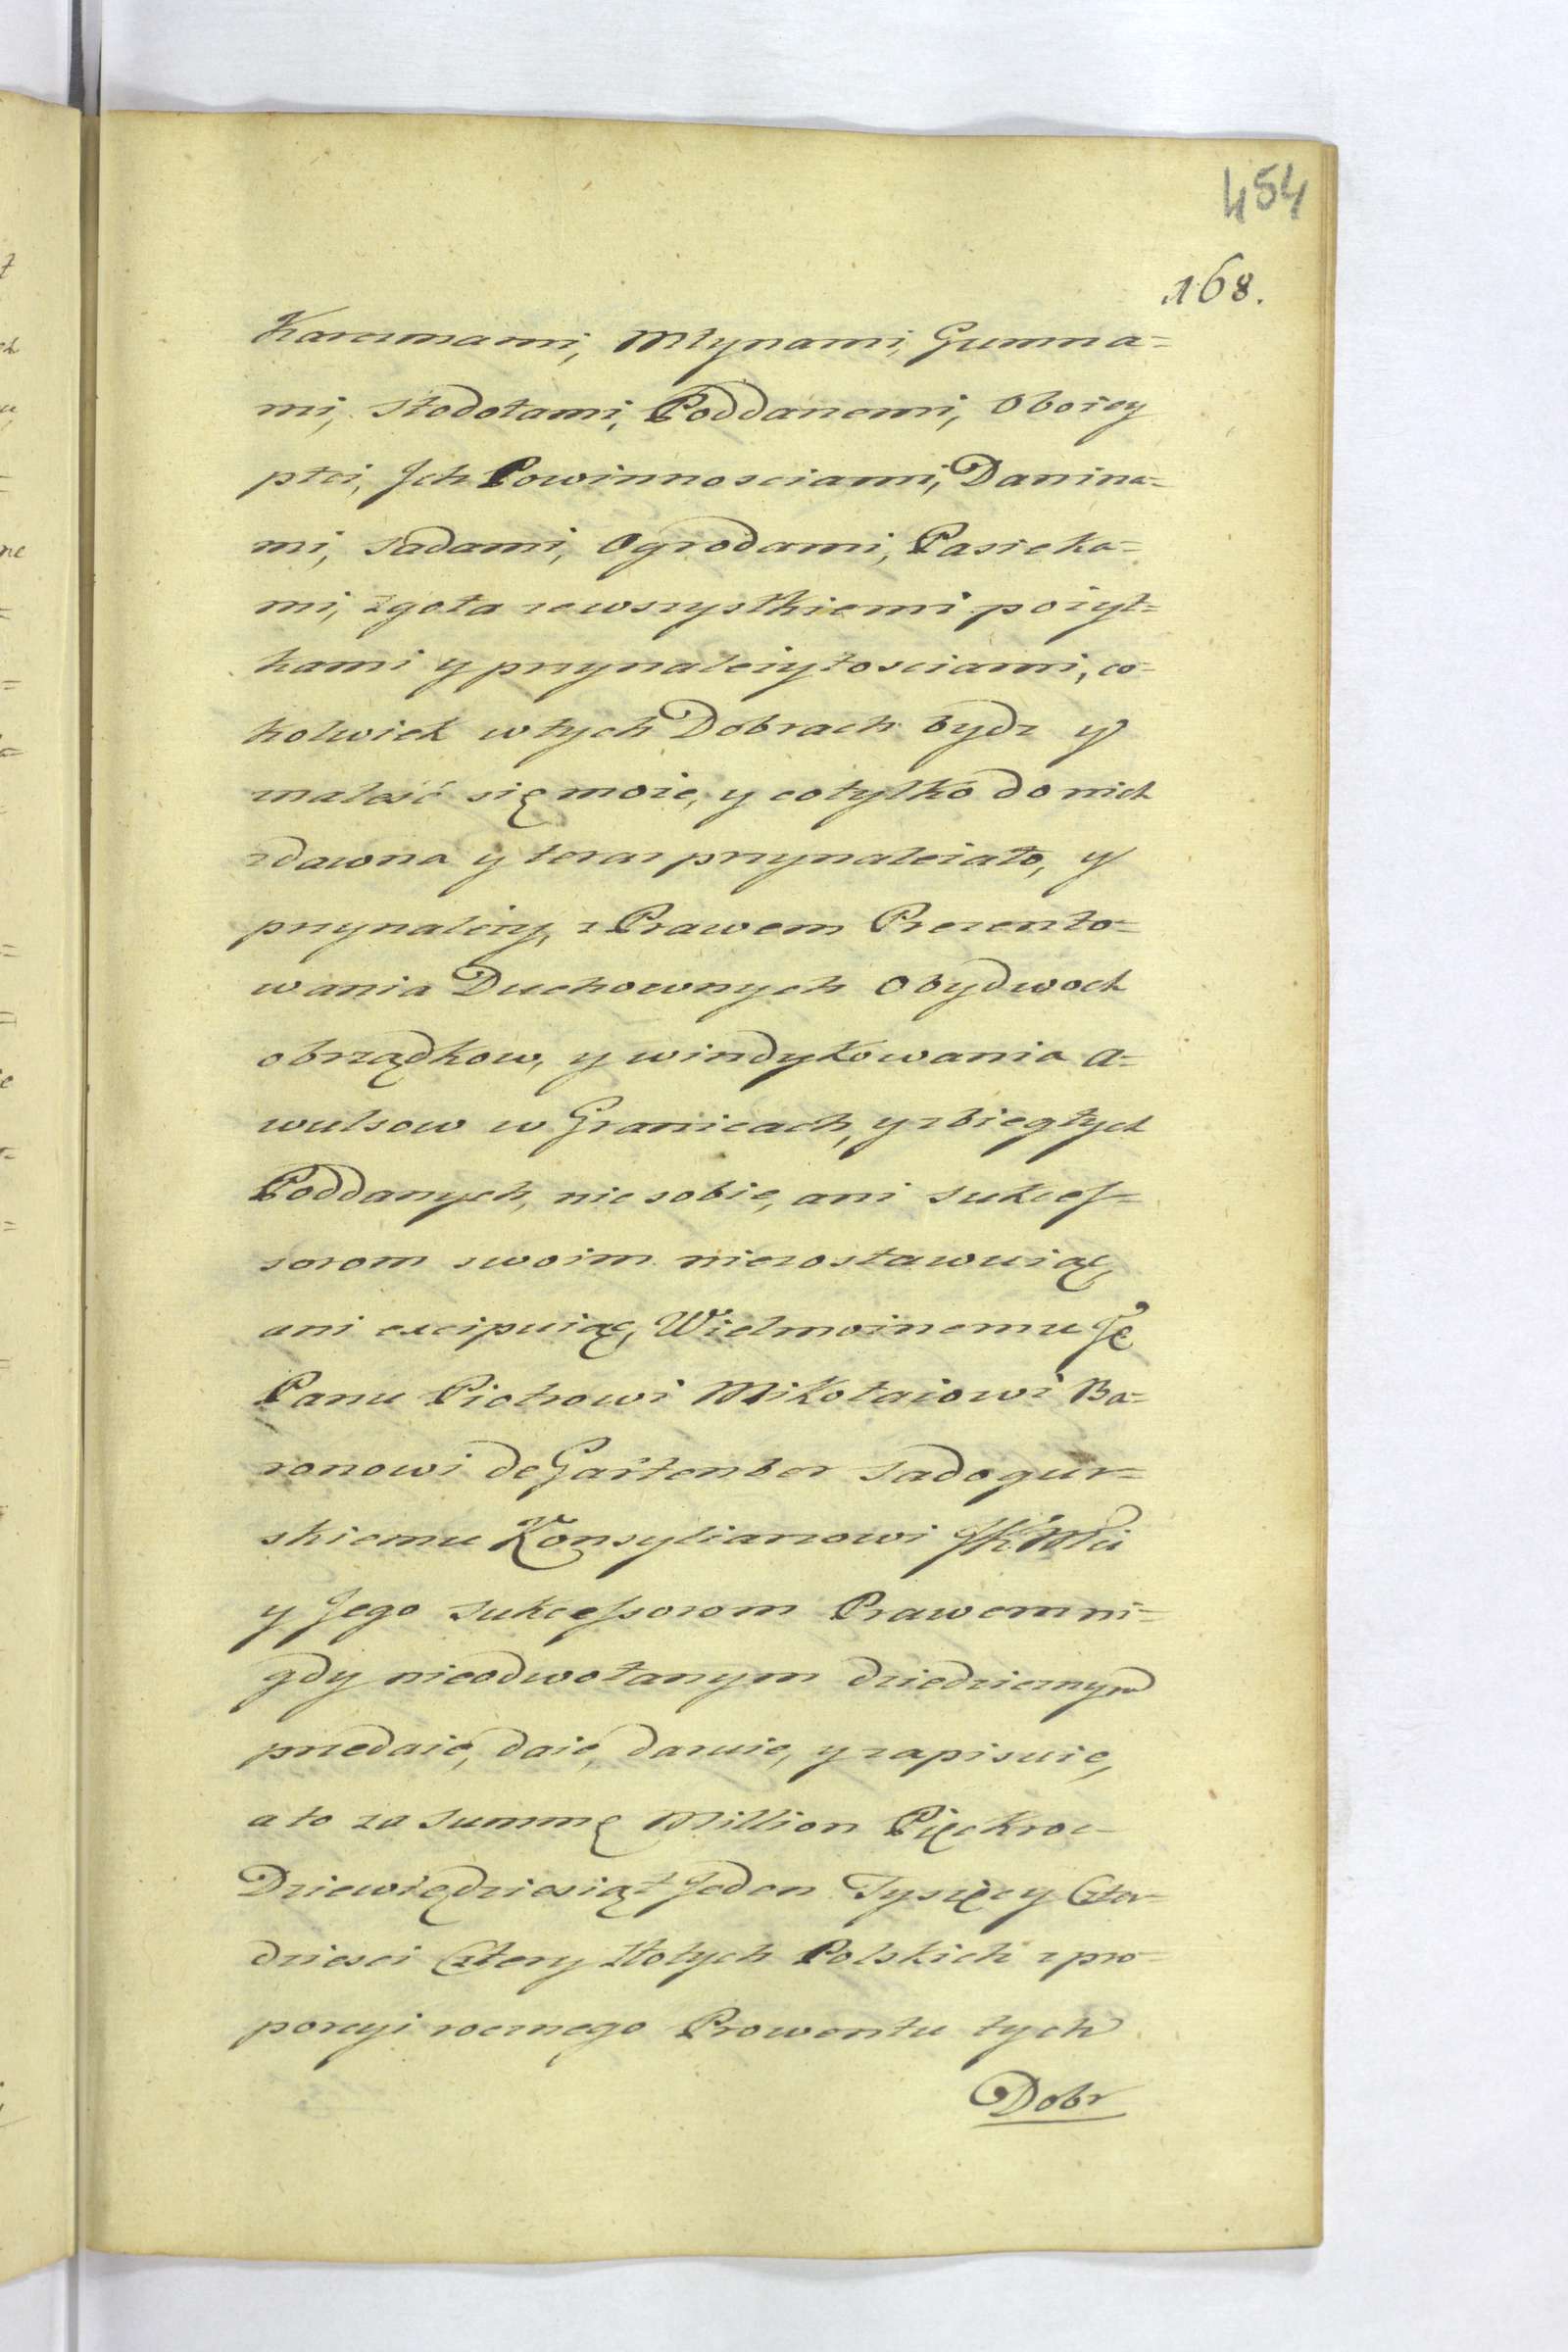 454
168.
Karczmami, Młynami, Gumna=
mi, Stodołami, Poddanemi, Oboiey
płci, Jch Powinnosciami, Danina=
mi, Sadami, Ogrodami, Pasieka=
mi, zgoła zewszystkiemi pożyt=
kami y przynależytosciami, co=
kolwiek wtych Dobrach bydz y
znaleść się może, y cotylko do nich
zdawna y teraz przynależało, y
przynależy, z Prawem Prezento=
wania Duchownych Obydwoch
obrządkow, y windykowania a=
wulsow w Granicach, y zbiegłych
Poddanych, nic sobie, ani Sukces=
sorom swoim niezostawuiąc,
ani excipuiąc, Wielmożnemu Jc
Panu Piotrowi Mikołaiowi Ba=
ronowi de Gartenber Sadogur=
skiemu Konsyliarzowi JKMci
y Jego Sukcessorom Prawem ni=
gdy nieodwołanym dziedzicznym
przedaie, daie, daruie, y zapisuie,
a to za Summę Million Pięckroc
Dziewiędziesiąt Jeden Tysięcy Czter=
dziesci Cztery Złotych Polskich z pro=
porcyi rocznego Prowentu tych
Dobr